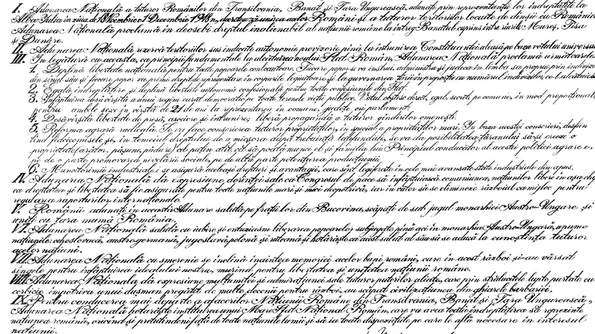 I. Adunarea Naţională a tuturor Românilor din Transilvania, Banat şi Ţara Ungurească, adunaţi prin reprezentanţii lor îndreptăţiţi la
Alba-Iulia în ziua de 1 Decembrie 1918, decretează unirea acelor Români şi a tuturor teritoriilor locuite de dânşii cu România.
Adunarea Naţională proclamă îndeosebi dreptul inalienabil al naţiunii române la întreg Banatul cuprins între râurile Mureş, Tisa
şi Dunăre.
II. Adunarea Naţională rezervă teritoriilor sus indicate autonomie provizorie până la întrunirea Constituantei aleasă pe baza votului universal.
III. În legătură cu aceasta, ca principii fundamentale la alcătuirea noului Stat Român, Adunarea Naţională proclamă următoarele:
1. Deplină libertate naţională pentru toate popoarele conlocuitoare. Fiecare popor se va
2. Egală îndreptăţire şi deplină libertate autonomă confesională pentru toate confesiunile din Stat.
3. Înfăptuirea desăvârşită a unui regim curat democratic pe toate terenele vieţii publice. Votul obştesc, direct, egal, secret, pe comune, în mod proporţional,
pentru ambele sexe, în vârstă de 21 de ani la reprezentarea în comune, judeţe ori parlament.
4. Desăvârşită libertate de presă, asociere şi întrunire; liberă propagandă a tuturor gândurilor omeneşti.
5. Reforma agrară radicală. Se va face conscrierea tuturor proprietăţilor, în special a proprietăţilor mari. În baza acestei conscrieri,
proprietate
pe de o parte promovarea nivelării sociale, pe de altă parte potenţarea producţiunii.
6. Muncitorimei industriale i se asigură aceleaşi drepturi şi avantagii, cari sunt legiferate în cele mai avansate state industriale din apus.
IV. Adunarea Naţională dă expresiune dorinţei sale, ca Congresul de pace să înfăptuiască comuniunea naţiunilor libere în aşa chip,
ca dreptatea şi libertatea să fie asigurate pentru toate naţiunile mari şi mici deopotrivă, iar în viitor să se elimineze războiul ca mijloc pentru
regularea raporturilor internaţionale.
V. Românii adunaţi în această Adunare salută pe fraţii lor din Bucovina, scăpaţi de sub jugul monarhiei Austro-Ungare şi
uniţi cu ţara mamă România.
VI. Adunarea Naţională salută cu iubire şi entuziasm liberarea popoarelor subjugate până aci în monarhia Austro-Ungară, anume
naţiunile: cehoslovacă, austro-germană, jugoslavă, polonă şi ruteană şi hotărăşte ca acest salut al său să se aducă la cunoştinţa tuturor
acelor naţiuni.
VII. Adunarea Naţională cu smerenie se închină înaintea memoriei acelor bravi români, care în acest război şi-au vărsat
sângele pentru înfăptuirea idealului nostru, murind pentru libertatea şi unitatea naţiunii române.
VIII. Adunarea Naţională dă expresiune mulţumirei şi admiraţiunei sale tuturor puterilor aliate, care prin strălucitele lupte purtate cu
cerbicie împotriva unui duşman pregătit de multe decenii pentru război, au scăpat civilizaţiunea din ghiarele barbariei.
IX. Pentru conducerea mai departe a afacerilor Naţiunii Române din Transilvania, Banat şi Ţara Ungurească,
Adunarea Naţională hotărăşte instituirea unui Mare Sfat Naţional Român, care va avea toată îndreptăţirea să reprezinte
naţiunea română, oricând şi pretutindeni faţă de toate naţiunile lumii şi să ia toate dispoziţiunile pe care le va afla necesare în interesul
naţiunii.